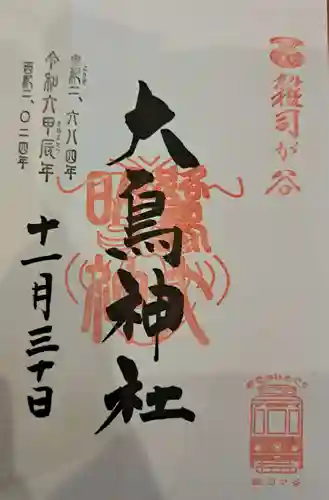 雑司が谷
大鳥神社
皇紀二、六八四年
令和六甲辰年
きのえたつ
西紀二、〇二四年
十一月三十日